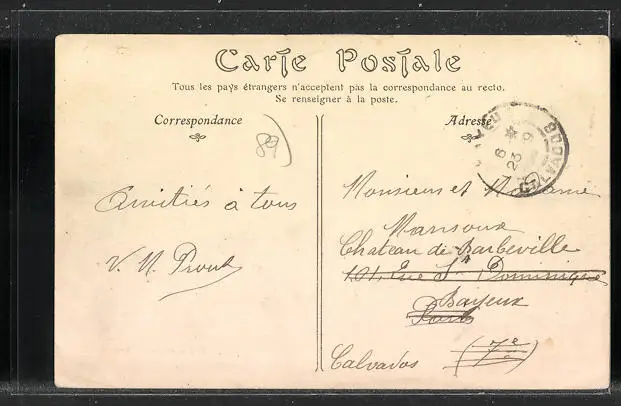 Carte Postale
Tous les pays étrangers n'acceptent pas la correspondance au recto.
Se renseigner à la poste.
Correspondance
Adresse
89
CALVADOS
6
23 9
Amitiés à tous
Monsieur et Madame
Mansoux
Chateau de Barbeville
101, Rue St Dominique
Bayeux
Paris
Calvados
(7e)